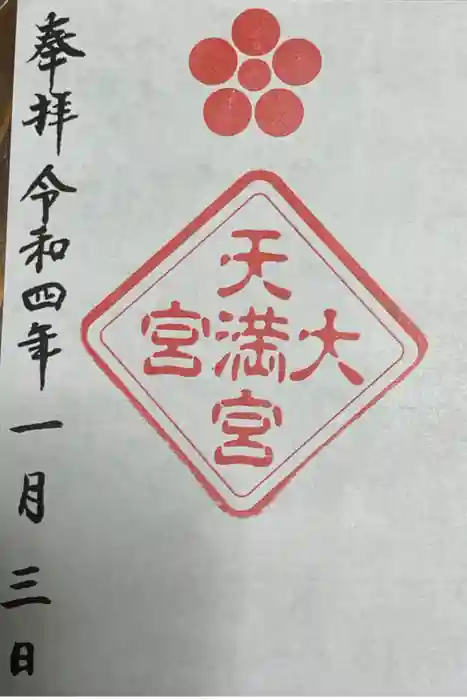 大宮
天満宮
奉拝 令和四年一月三日